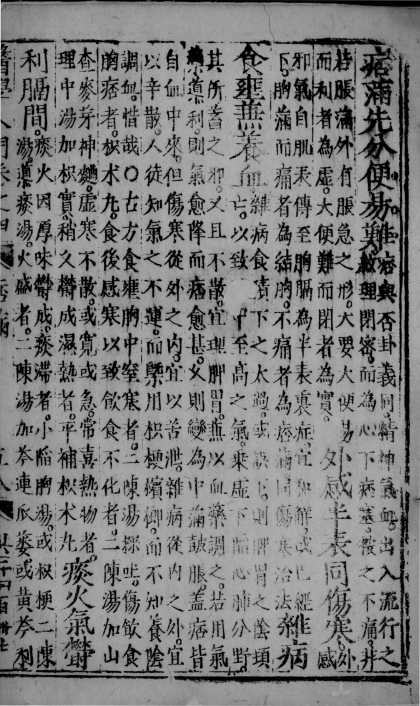 痞滿先分便易難痞與否卦義同精神氣血出入流行之
理閉密而為心下痞塞按之不痛非
若脹滿外有脹急之形大要大便易
而利者為虛大便難而閉者為實外感半表同傷寒外感
邪氣自肌表傳至胸膈為半表裏症宜和解或已經
下胸滿而痛者為結胸不痛者為痞滿同傷寒治法雜病
食壅兼養血雜病食積下之太過或誤下則脾胃之陰頓
亡以致 中至高之氣乘虛下陷心肺分野
其所蓄之邪又且不散宜理脾胃兼以血藥調之若用氣
藥導利則氣愈降而痞愈甚久則變為中滿鼓脹蓋痞皆
自血中來但傷寒從外之內宜以苦泄雜病從內之外宜
以辛散人徒知氣之不運而槩用枳梗檳榔而不知養陰
調血惜哉○古方食壅胸中窒塞者二陳湯探吐傷飲食
胸痞者枳朮丸食後感寒以致飲食不化者二陳湯加山
查麥芽神麯虛寒不散或寬或急常喜熱物者
理中湯加枳實稍久鬱成濕熱者平補枳朮丸痰火氣鬱
利膈間痰火因厚味鬱成痰滯者小陷胸湯或枳梗二陳
湯導痰湯火盛者二陳湯加芩連瓜蔞或黃芩利